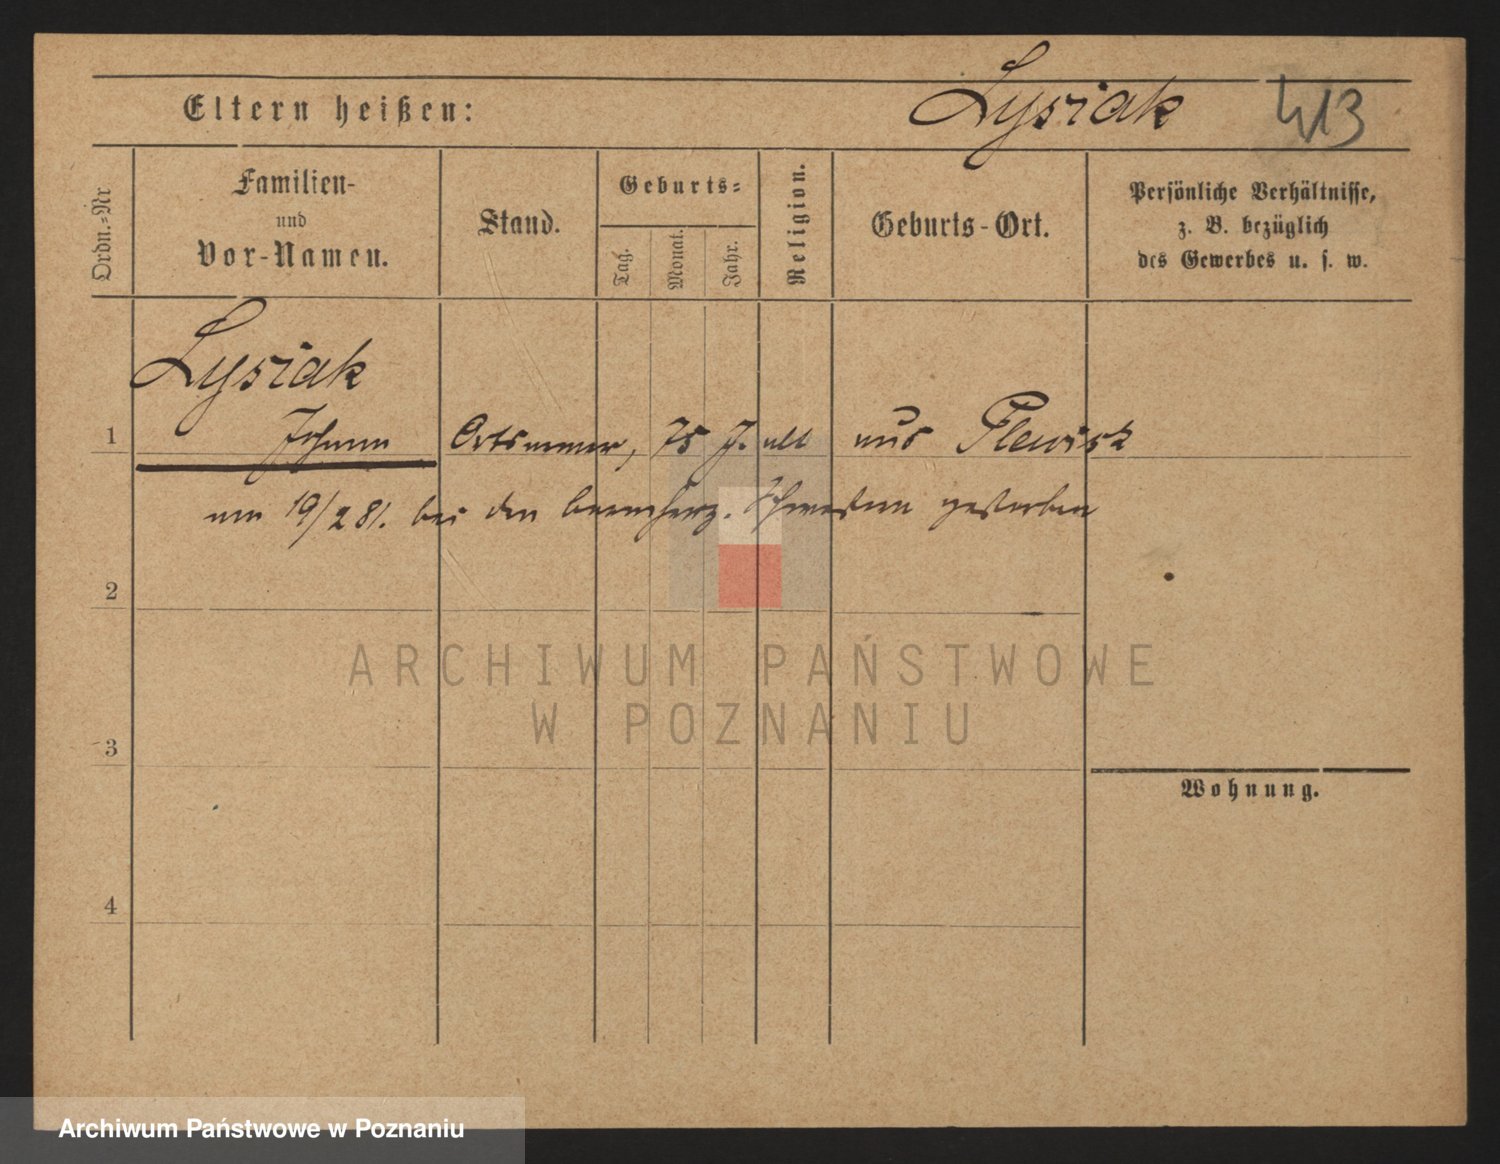 Eltern heißen: Lysiak 413
Ordn.-Nr
Familien-
und
Vor-Namen.
Stand.
Geburts-
Tag.
Monat.
Jahr.
Religion.
Geburts-Ort.
Persönliche Verhältnisse,
z. B. bezüglich
des Gewerbes u. s. w.
Lysiak
1 Johann Ortsarmer, 75 J. alt aus Plewisk
am 19/2 81. bei den barmherz. Schwestern gestorben
2
ARCHIWUM PAŃSTWOWE
W POZNANIU
3
Wohnung.
4
Archiwum Państwowe w Poznaniu